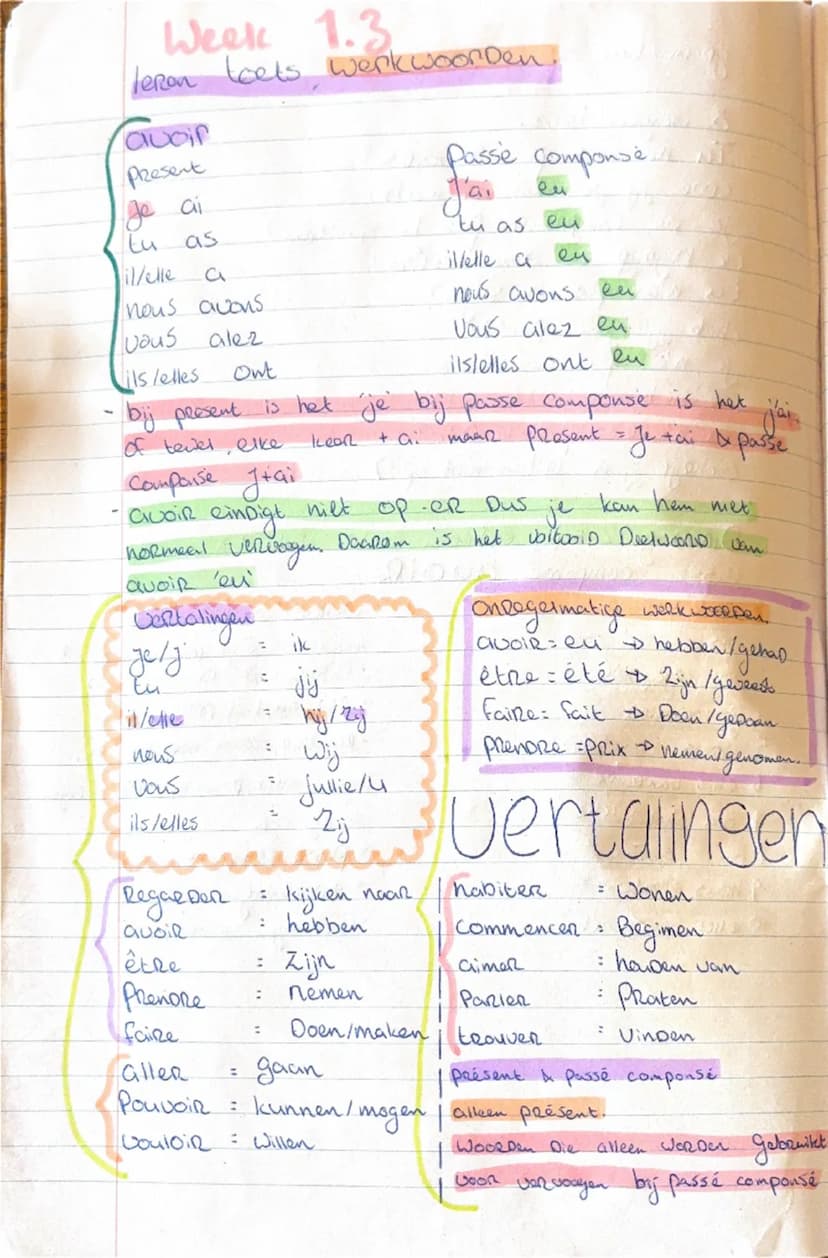 Week 1.3
leren toets werkwoorden.
avoir
present
je ai
tu as
il/elle a
nous avons
vous avez
ils/elles ont
Passé componsé
j'ai eu
tu as eu
il/elle a eu
nous avons eu
vous avez eu
ils/elles ont eu
- bij present is het 'je' bij passe componsé is het j'ai
of terwel, elke keer + ai maar present = Je + ai & passe
componsé J + ai
- avoir eindigt niet op -er Dus je kan hem niet
normaal vervoegen. Daarom is het voltooid Deelwoord van
avoir 'eu'
vertalingen
je/j' = ik
tu = jij
il/elle = hij/zij
nous = wij
vous = jullie/u
ils/elles = zij
onregelmatige werkwoorden.
avoir = eu → hebben/gehad
être = été → zijn/geweest
faire = fait → Doen/gedaan
prendre = prix → nemen/genomen.
vertalingen
regarder : kijken naar
avoir : hebben
être : zijn
Prendre : nemen
faire : Doen/maken
aller = gaan
Pouvoir : kunnen/mogen
vouloir : willen
habiter : wonen
commencer : Beginnen
aimer : houden van
Parler : Praten
trouver : vinden
présent & passé componsé
alleen présent.
woorden die alleen worden gebruikt
voor vervoegen bij passé componsé